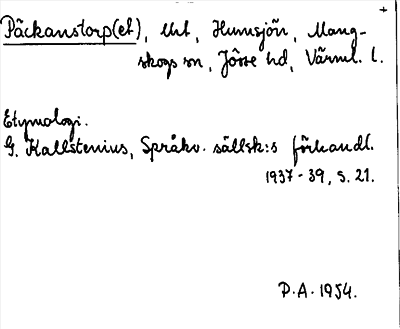 +
Päckanstorp(et), Uht, Humsjön, Mang-
skogs sn, Jösse hd, Värml. l.
Etymologi.
G. Kallstenius, Språkv. sällsk:s förhandl.
1937-39, s. 21.
P.A. 1954.